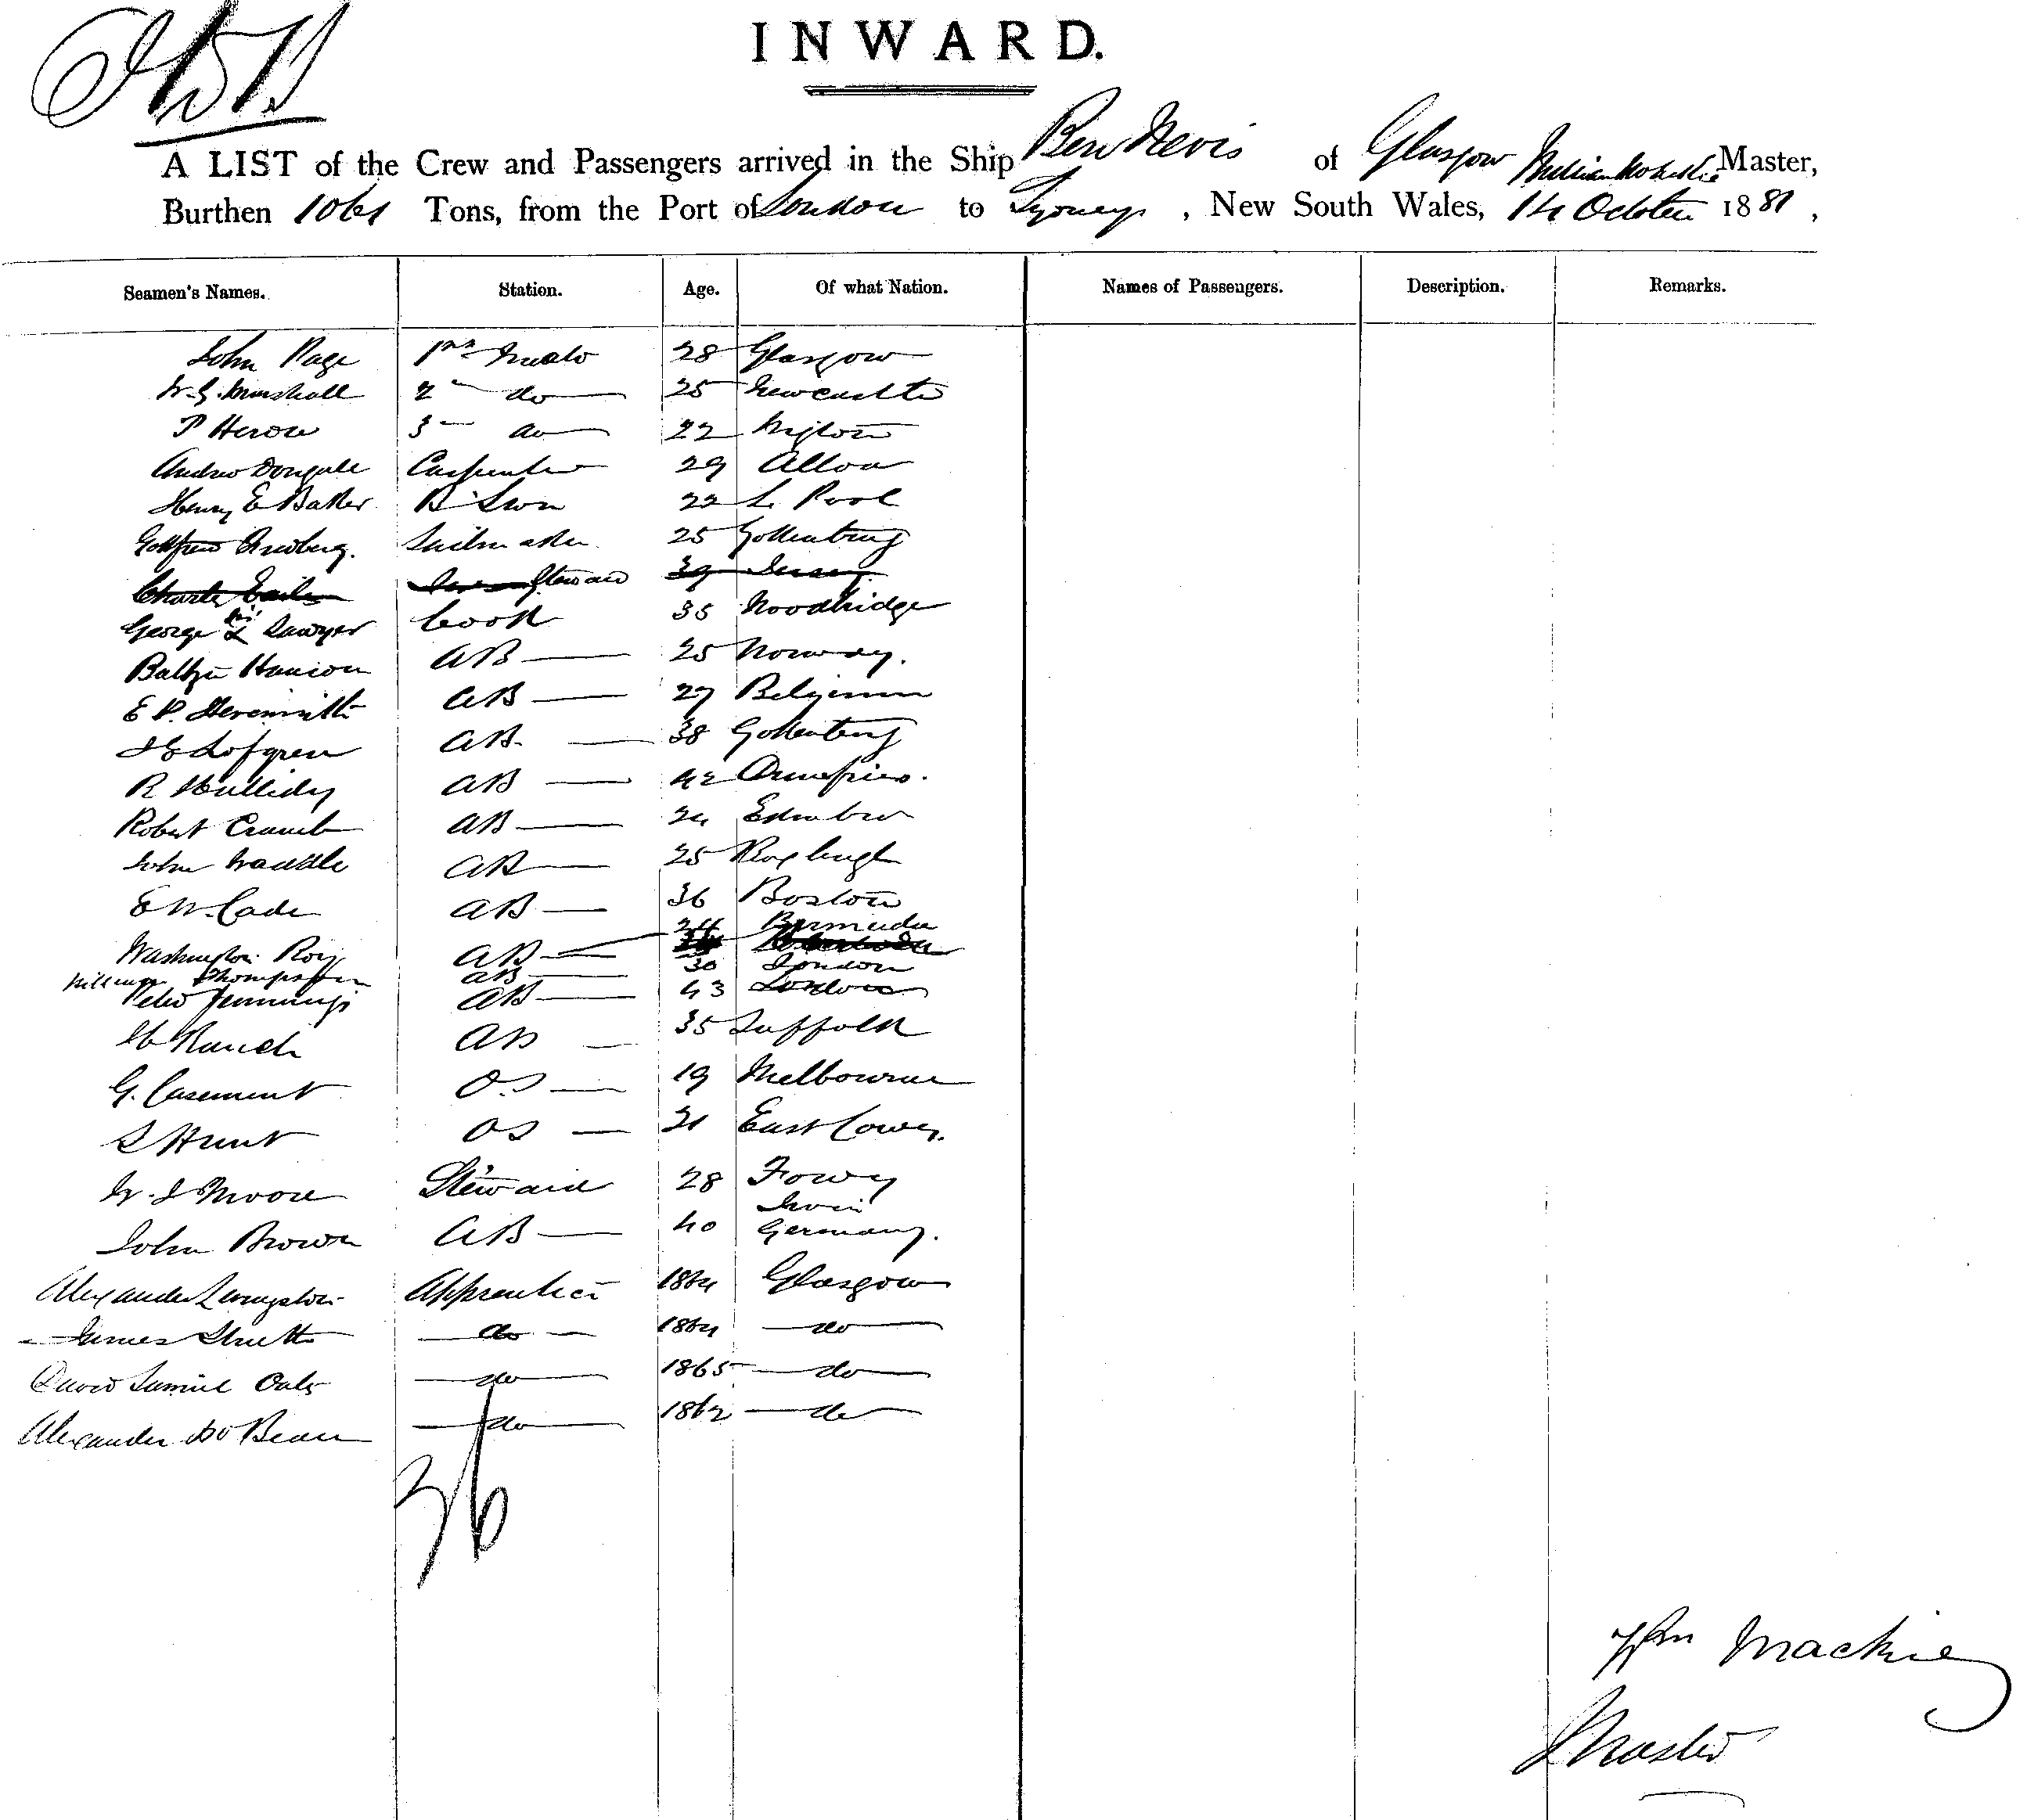 INWARD.
A LIST of the Crew and Passengers arrived in the Ship Ben Nevis of Glasgow William Master,
Burthen 1061 Tons, from the Port of London to Sydney, New South Wales, 14 October 1881,
Seamen's Names. Station. Age. Of what Nation. Names of Passengers. Description. Remarks.
John Page 1st Mate 28 Glasgow
W. G. Marshall 2 do 25 Newcastle
P Heron 3 do 22
Andrew Dougall Carpenter 29 Alloa
Henry E Baker B Swn 22 L. Pool
Sailmaker 25 Gottenburg
Charles Steward 39 Jersey
George Sawyer Cook 35 Woodbridge
Hanson AB 25 Norway.
E P. AB 27 Belgium
Lofgren AB. 38 Gottenburg
R Halliday AB 42 Dumfries.
Robert Cramb AB 24 Edinbro
John Waddle AB 25 Roxburgh
E W. Cade AB 36 Boston
Washington Roy AB 24 Bermuda
William Thompson AB 30 London
Peter Jennings AB 43 London
Ranch AB 35 Suffolk
G. Casement OS 19 Melbourne
S Hunt OS 21 East Cowes.
W. J Moore Steward 28 Fowey
John Brown AB 40 Germany.
Alexander Livingston Apprentice 1864 Glasgow
James do 1864 do
David Samuel do 1865 do
Alexander Bean do 1862 do
36
Wm Mackie
Master